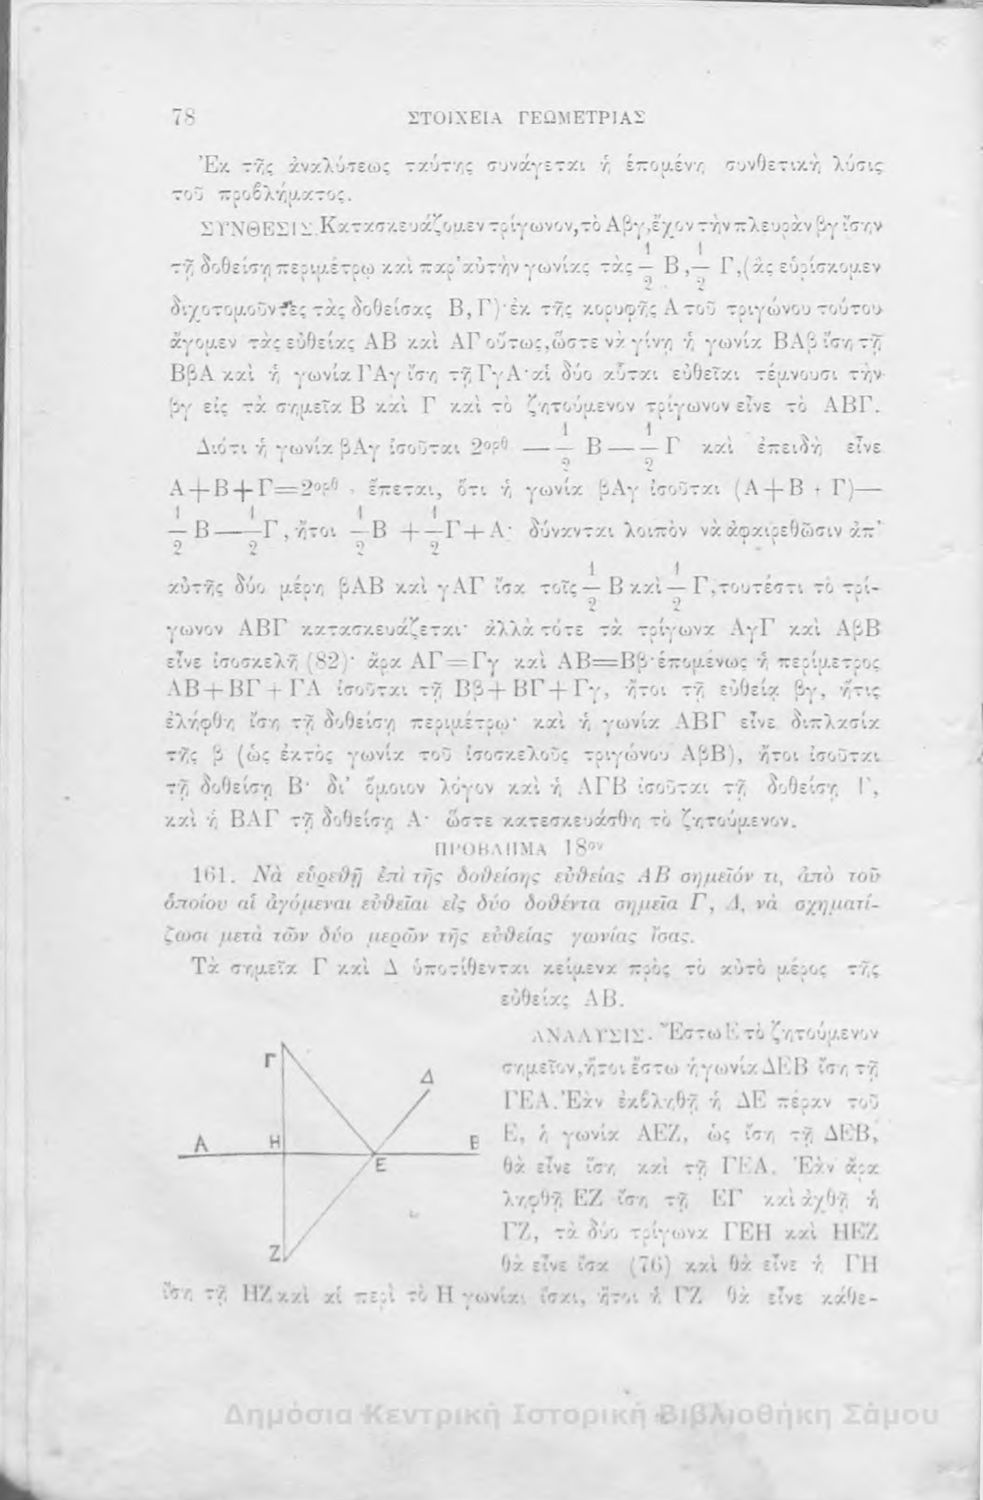 78 ΣΤΟΙΧΕΙΑ ΓΕΩΜΕΤΡΙΑΣ
Ἐκ τῆς ἀναλύσεως ταύτης συνάγεται ἡ ἑπομένη συνθετικὴ λύσις
τοῦ προβλήματος.
ΣΥΝΘΕΣΙΣ. Κατασκευάζομεν τρίγωνον, τὸ Αβγ, ἔχον τὴν πλευρὰν βγ ἴσην
τῇ δοθείσῃ περιμέτρῳ καὶ παρ' αὐτὴν γωνίας τὰς 1/2 Β, 1/2 Γ, (ἃς εὑρίσκομεν
διχοτομοῦντες τὰς δοθείσας Β, Γ)· ἐκ τῆς κορυφῆς Α τοῦ τριγώνου τούτου
ἄγομεν τὰς εὐθείας ΑΒ καὶ ΑΓ οὕτως, ὥστε νὰ γίνῃ ἡ γωνία ΒΑβ ἴση τῇ
ΒβΑ καὶ ἡ γωνία ΓΑγ ἴση τῇ ΓγΑ· αἱ δύο αὗται εὐθεῖαι τέμνουσι τὴν
βγ εἰς τὰ σημεῖα Β καὶ Γ καὶ τὸ ζητούμενον τρίγωνον εἶνε τὸ ΑΒΓ.
Διότι ἡ γωνία βΑγ ἰσοῦται 2ορθ — 1/2 Β — 1/2 Γ καὶ ἐπειδὴ εἶνε
Α+Β+Γ=2ορθ. ἕπεται, ὅτι ἡ γωνία βΑγ ἰσοῦται (Α+Β+Γ)—
1/2 Β — 1/2 Γ, ἤτοι 1/2 Β + 1/2 Γ + Α· δύνανται λοιπὸν νὰ ἀφαιρεθῶσιν ἀπ'
αὐτῆς δύο μέρη βΑΒ καὶ γΑΓ ἴσα τοῖς 1/2 Β καὶ 1/2 Γ, τουτέστι τὸ τρί-
γωνον ΑΒΓ κατασκευάζεται· ἀλλὰ τότε τὰ τρίγωνα ΑγΓ καὶ ΑβΒ
εἶνε ἰσοσκελῆ (82)· ἄρα ΑΓ=Γγ καὶ ΑΒ=Ββ· ἑπομένως ἡ περίμετρος
ΑΒ+ΒΓ+ΓΑ ἰσοῦται τῇ Ββ+ΒΓ+Γγ, ἤτοι τῇ εὐθείᾳ βγ, ἥτις
ἐλήφθη ἴση τῇ δοθείσῃ περιμέτρῳ· καὶ ἡ γωνία ΑΒΓ εἶνε διπλασία
τῆς β (ὡς ἐκτὸς γωνία τοῦ ἰσοσκελοῦς τριγώνου ΑβΒ), ἤτοι ἰσοῦται
τῇ δοθείσῃ Β· δι' ὅμοιον λόγον καὶ ἡ ΑΓΒ ἰσοῦται τῇ δοθείσῃ Γ,
καὶ ἡ ΒΑΓ τῇ δοθείσῃ Α· ὥστε κατεσκευάσθη τὸ ζητούμενον.
ΠΡΟΒΛΗΜΑ 18ον
161. Νὰ εὑρεθῇ ἐπὶ τῆς δοθείσης εὐθείας ΑΒ σημεῖόν τι, ἀπὸ τοῦ
ὁποίου αἱ ἀγόμεναι εὐθεῖαι εἰς δύο δοθέντα σημεῖα Γ, Δ, νὰ σχηματί-
ζωσι μετὰ τῶν δύο μερῶν τῆς εὐθείας γωνίας ἴσας.
Τὰ σημεῖα Γ καὶ Δ ὑποτίθενται κείμενα πρὸς τὸ αὐτὸ μέρος τῆς
εὐθείας ΑΒ.
ΑΝΑΛΥΣΙΣ. Ἔστω Ε τὸ ζητούμενον
σημεῖον, ἤτοι ἔστω ἡ γωνία ΔΕΒ ἴση τῇ
ΓΕΑ. Ἐὰν ἐκβληθῇ ἡ ΔΕ πέραν τοῦ
Ε, ἡ γωνία ΑΕΖ, ὡς ἴση τῇ ΔΕΒ,
θὰ εἶνε ἴση καὶ τῇ ΓΕΑ. Ἐὰν ἄρα
ληφθῇ ΕΖ ἴση τῇ ΕΓ καὶ ἀχθῇ ἡ
ΓΖ, τὰ δύο τρίγωνα ΓΕΗ καὶ ΗΕΖ
θὰ εἶνε ἴσα (76) καὶ θὰ εἶνε ἡ ΓΗ
ἴση τῇ ΗΖ καὶ αἱ περὶ τὸ Η γωνίαι ἴσαι, ἤτοι ἡ ΓΖ θὰ εἶνε κάθε-
Γ
Δ
Α Η Ε Β
Ζ
Δημόσια Κεντρική Ιστορική Βιβλιοθήκη Σάμου